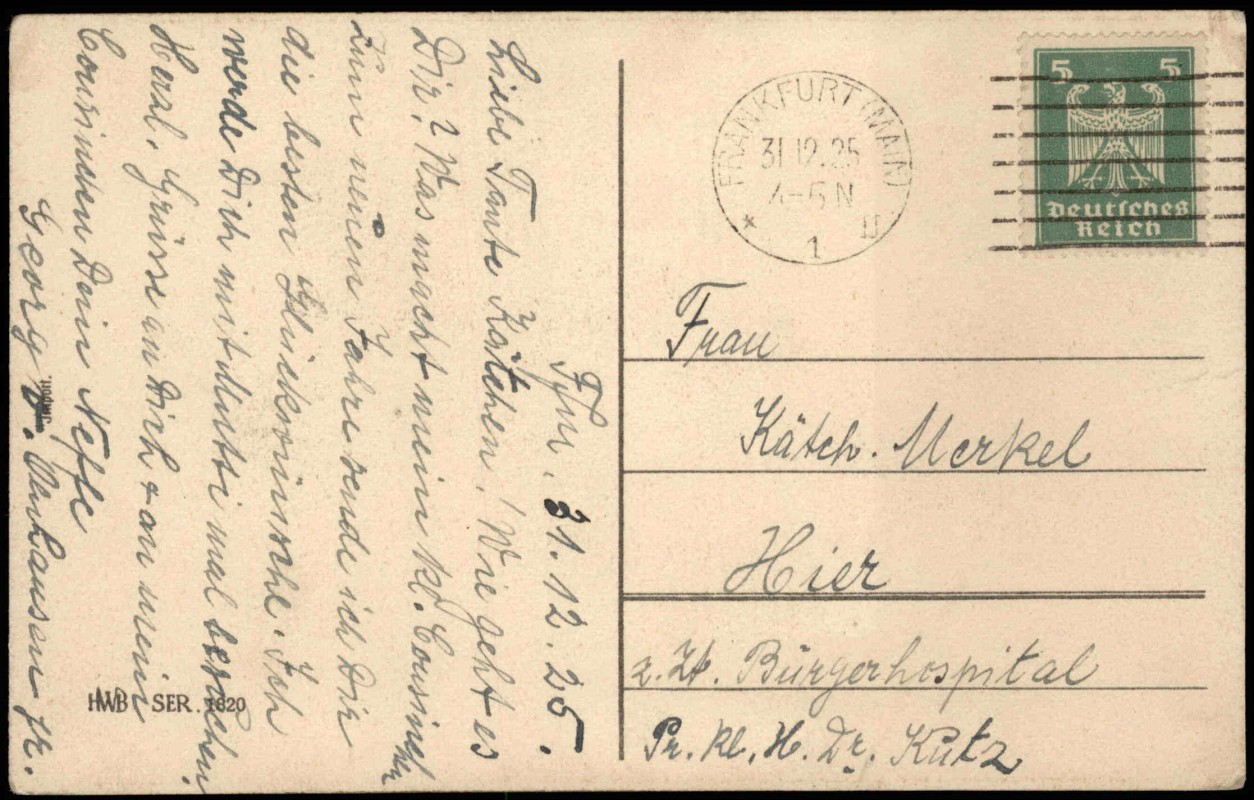 Ffm. 31.12.25.
Liebe Tante Kätchen! Wie geht es
Dir? Was macht mein kl. Cousinchen
Zum neuen Jahre sende ich Dir
die besten Glückwünsche. Ich
werde Dich mit Mutti mal besuchen.
Herzl. Grüsse an Dich + an mein
Cousinchen Dein Neffe
Georg jr.
HWB SER. 1820
FRANKFURT (MAIN)
31.12.25
4-5 N
* 1 II
5 5
Deutsches
Reich
Frau
Kätch. Merkel
Hier
z. Zt. Bürgerhospital
Pr. kl. H. Dr. Kutz